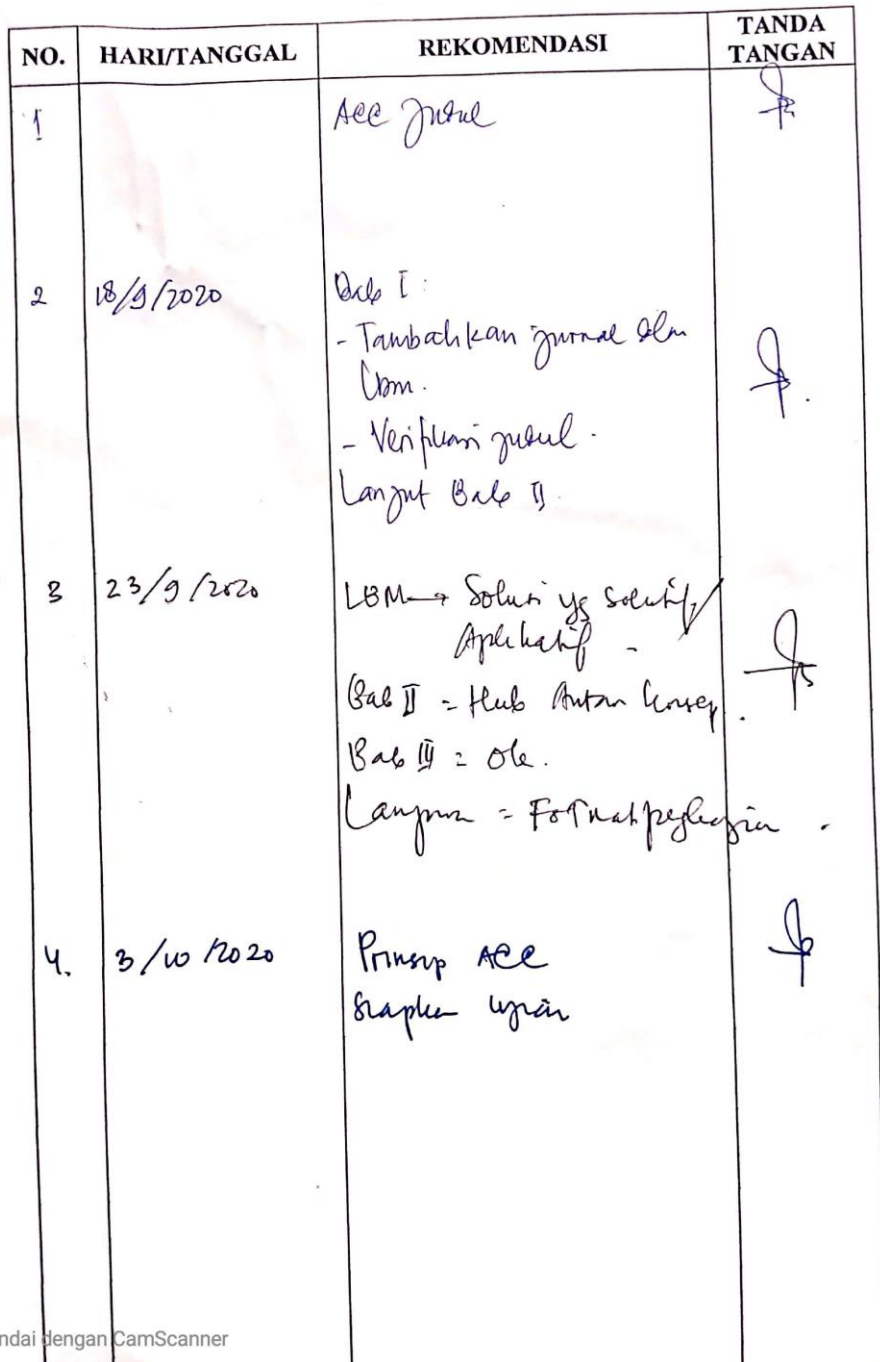 NO. HARI/TANGGAL REKOMENDASI TANDA TANGAN
1 Acc Judul
2 18/9/2020 Bab I :
- Tambahkan jurnal dlm
Lbm.
- Verifikasi judul.
Lanjut Bab II
3 23/9/2020 LBM → Solusi yg solutif/
Aplikatif
Bab II = Hub Antar konsep.
Bab III = Ok.
= Format pengkajian.
4. 3/10/2020 Prinsip ACC
Siapkan ujian
ndai dengan CamScanner